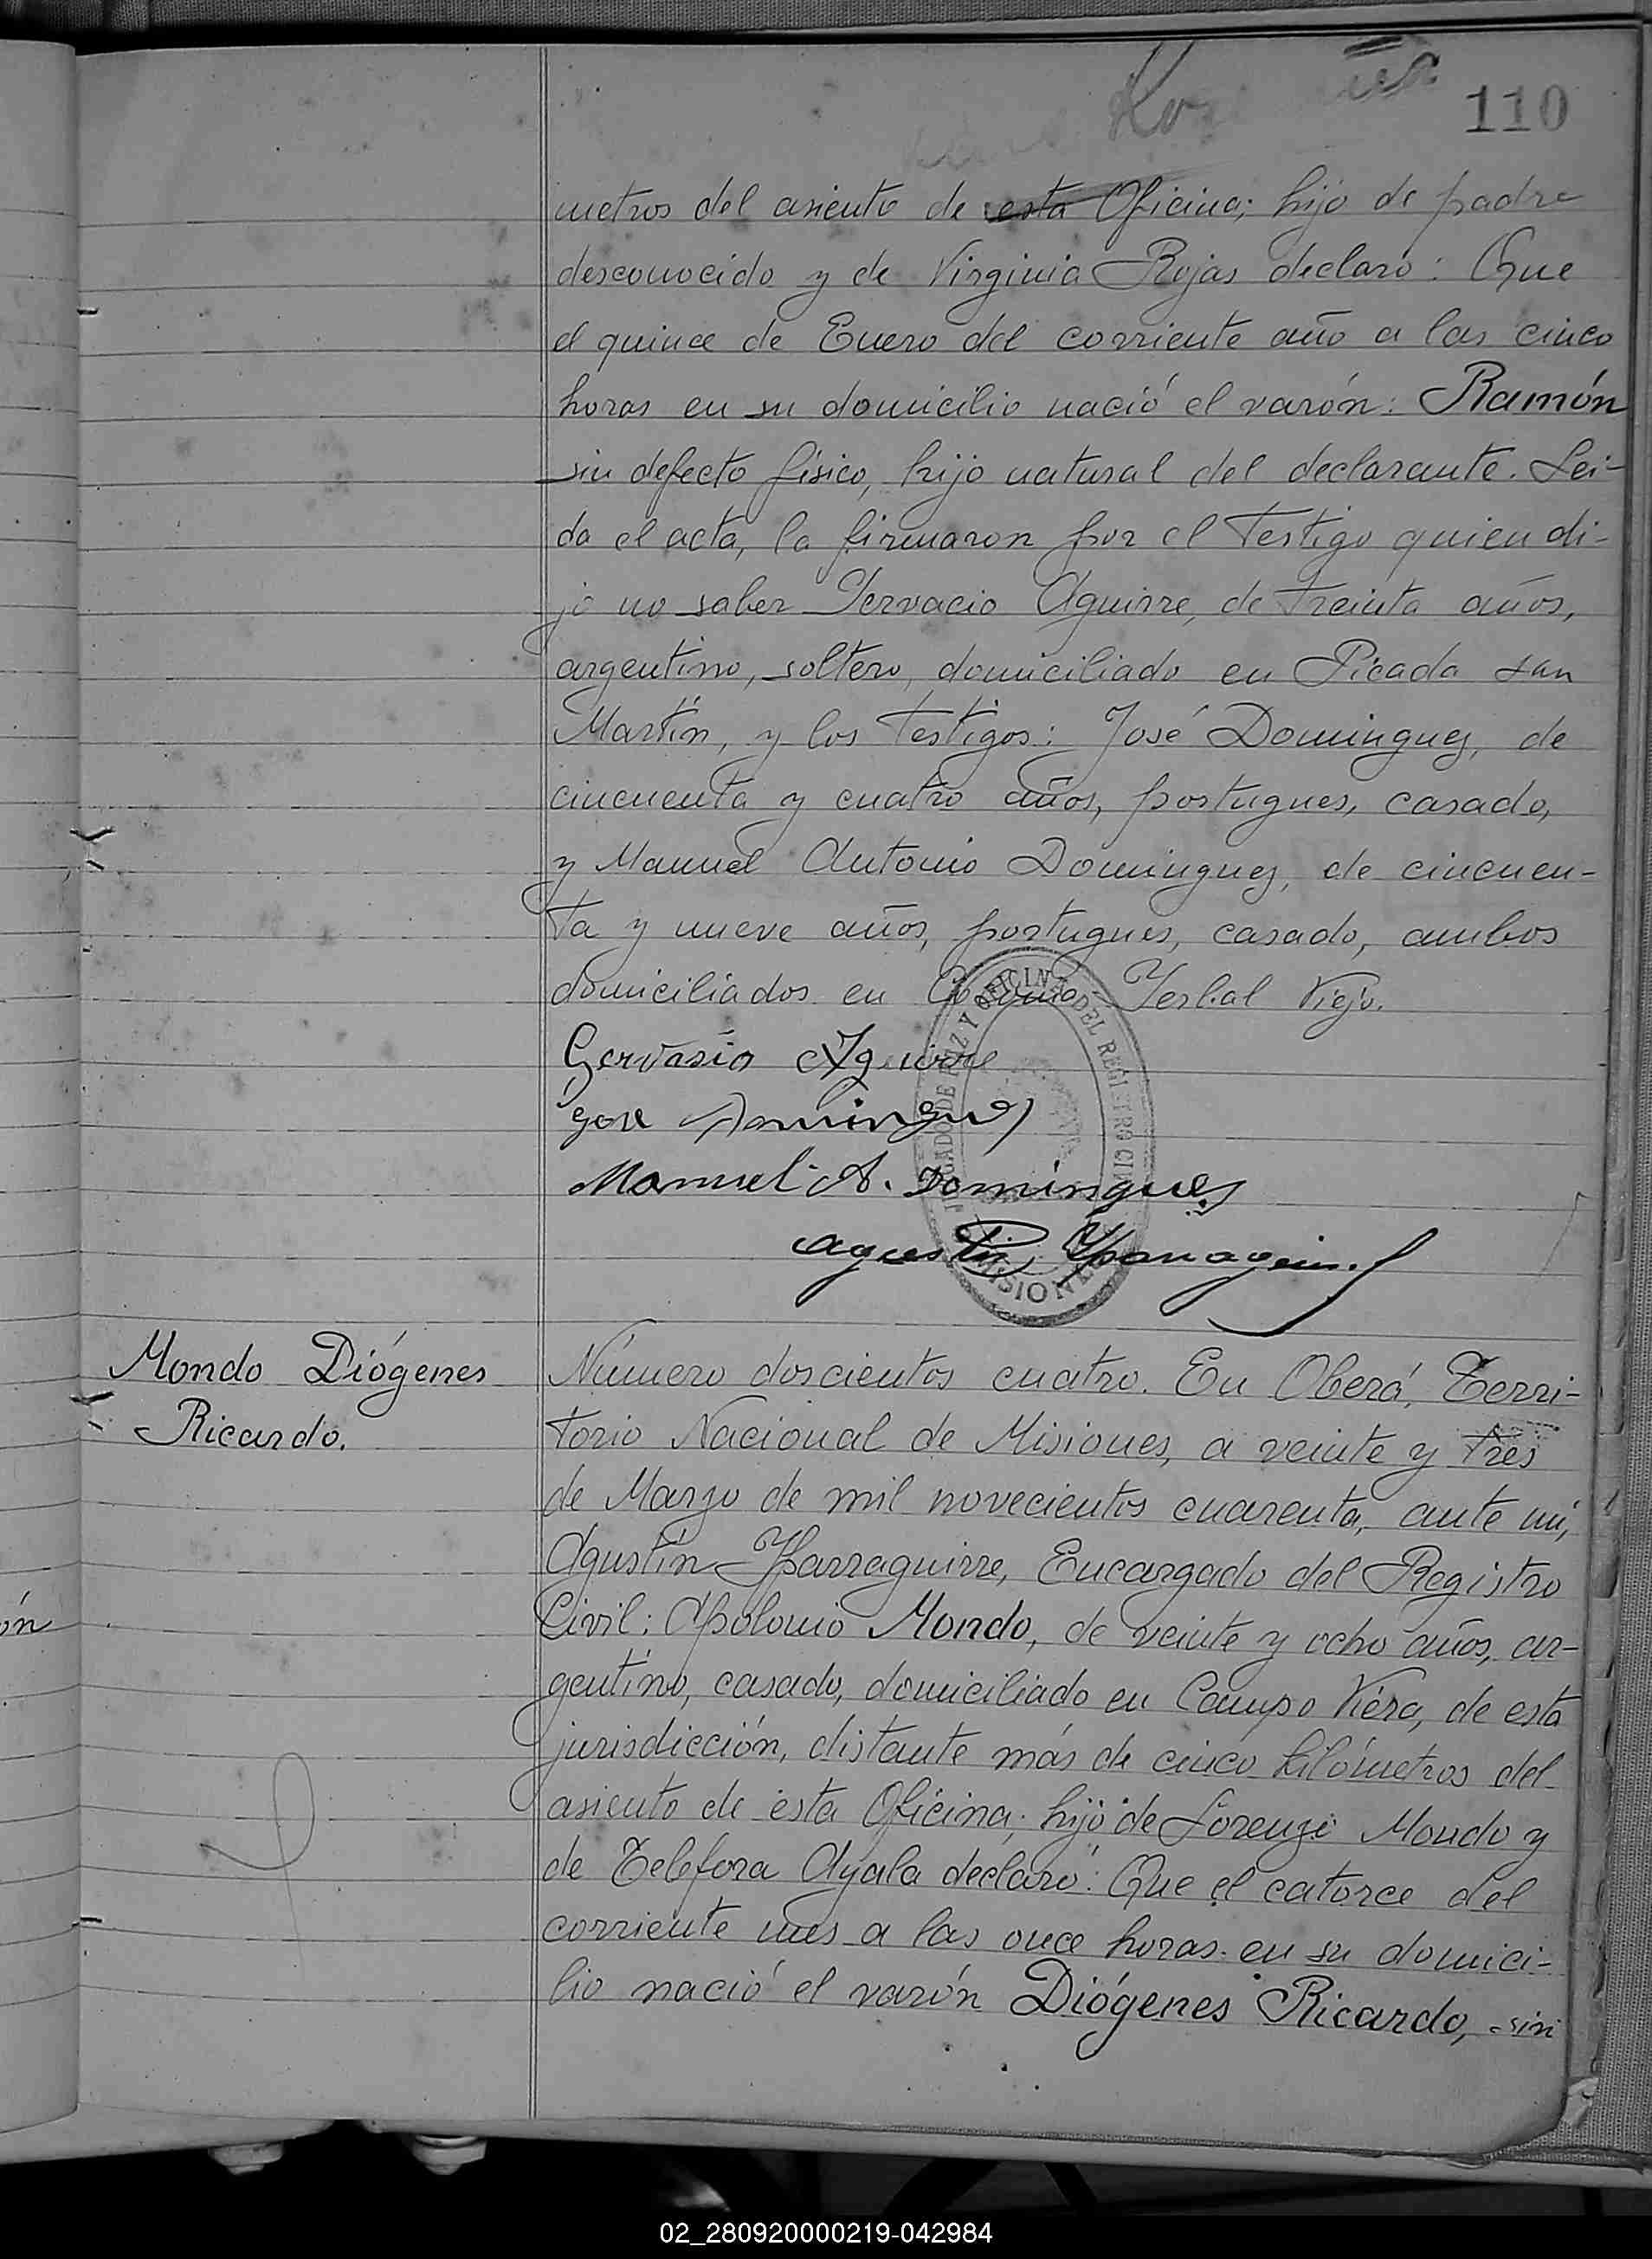 110
metros del asiento de esta Oficina; hijo de padre
desconocido y de Virginia Rojas declaró: Que
el quince de Enero del corriente año a las cinco
horas en su domicilio nació el varón: Ramón
sin defecto físico, hijo natural del declarante. Lei-
da el acta, la firmaron por el Testigo quien di-
jo no saber Gervacio Aguirre, de treinta años,
argentino, soltero, domiciliado en Picada San
Martín, y los Testigos: José Dominguez, de
cincuenta y cuatro años, portugues, casado,
y Manuel Antonio Dominguez, de cincuen-
ta y nueve años, portugues, casado, ambos
domiciliados en Colonia Yerbal Viejo.
Gervasio Aguirre
Jose Dominguez
Manuel A. Domingues
JUZGADO DE PAZ Y OFICINA DEL REGISTRO CIVIL
MISIONES
Mondo Diógenes
Ricardo.
Número doscientos cuatro. En Oberá, Terri-
torio Nacional de Misiones, a veinte y tres
de Marzo de mil novecientos cuarenta, ante mi,
Agustín Yparraguirre, Encargado del Registro
Civil: Apolonio Mondo, de veinte y ocho años, ar-
gentino, casado, domiciliado en Campo Viera, de esta
jurisdicción, distante más de cinco kilómetros del
asiento de esta Oficina; hijo de Lorenzo Mondo y
de Telefora Ayala declaró: Que el catorce del
corriente mes a las once horas en su domici-
lio nació el varón Diógenes Ricardo, sin
ón
02_280920000219-042984